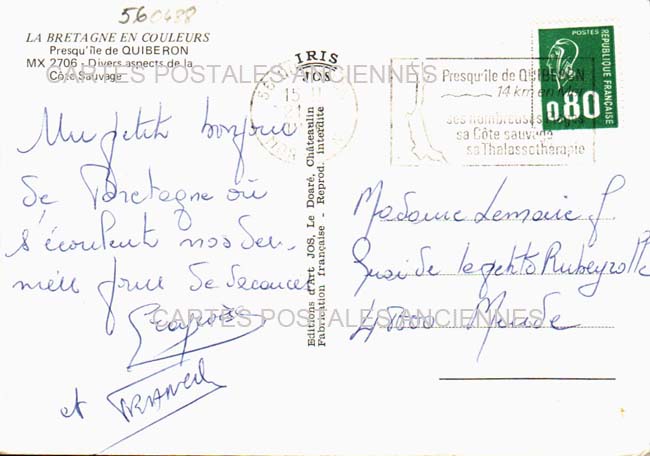 560488
LA BRETAGNE EN COULEURS
Presqu'île de QUIBERON
MX 2706 - Divers aspects de la
Côte Sauvage
CARTES POSTALES ANCIENNES
IRIS
JOS
Editions d'Art JOS, Le Doaré, Châteaulin
Fabrication française - Reprod. interdite
15
Presqu'île de QUIBERON
14 km en Mer
ses nombreuses
sa Côte sauvage
sa Thalassothérapie
POSTES
REPUBLIQUE FRANÇAISE
0,80
Un petit bonjour
de Bretagne où
s'écoulent nos der-
niers jours de vacances
et
Madame Lemaire J.
Quai de la petite Rubeyrolle
48000 Mende
CARTES POSTALES ANCIENNES